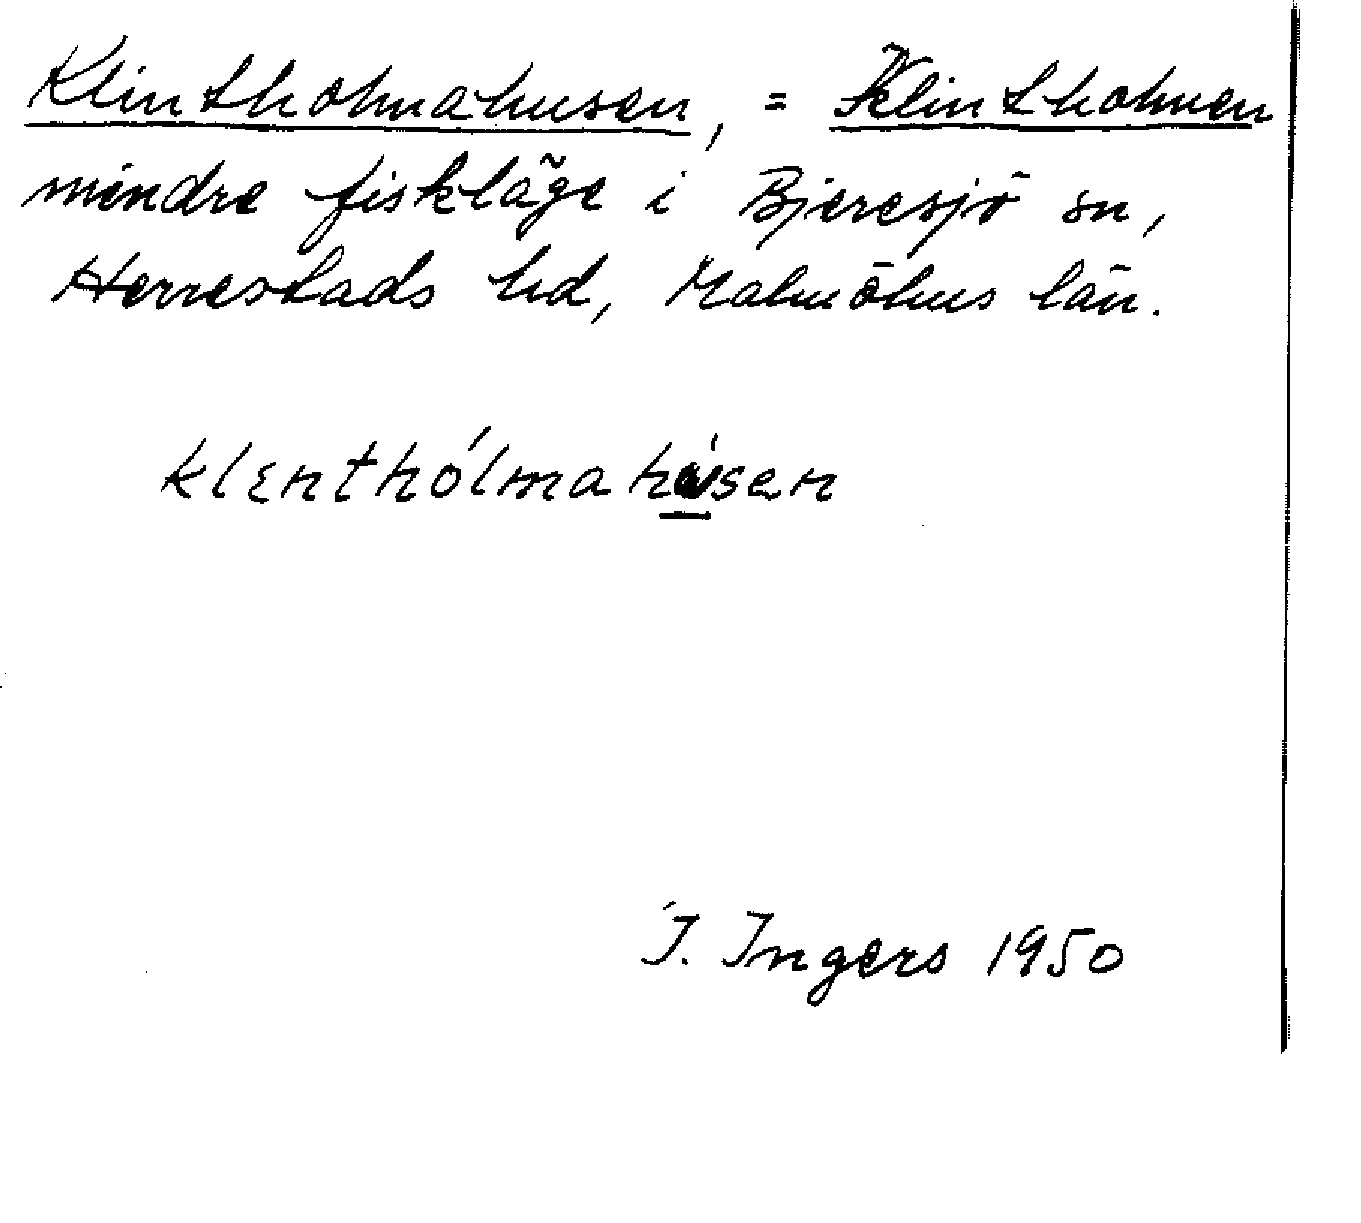 Klintholmahusen, = Klintholmen
mindre fiskläge i Bjeresjö sn,
Herrestads hd, Malmöhus län.
klɛnthólmahúsen
I. Ingers 1950